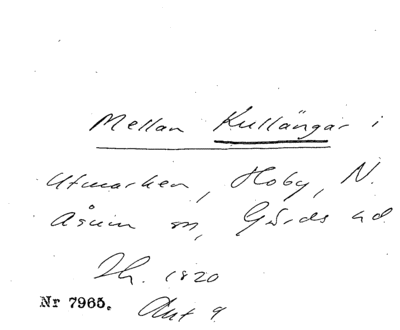 Mellan Kullängar i
Utmarken, Hoby, N.
Åsum sn, Gärds hd
Lh. 1820
Nr 7965. Akt 9